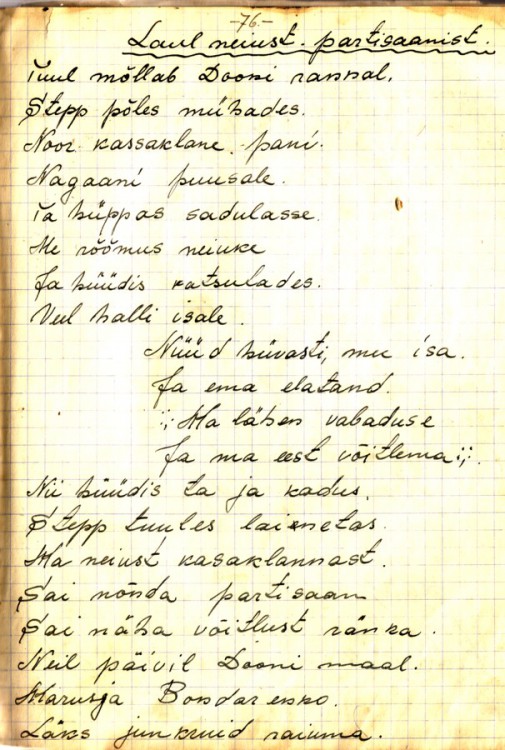 -76.-
Laul neiust-partisaanist.
Tuul möllab Dooni rannal,
Stepp põles mühades.
Noor kassaklane pani
Nagaani puusale.
Ta hüppas sadulasse.
Me rõõmus neiuke
Ja hüüdis ratsulades.
Veel halli isale.
Nüüd hüvasti, mu isa.
Ja ema elatand.
:,: Ma lähen vabaduse
Ja ma eest võitlema :,:.
Nii hüüdis ta ja kadus,
Stepp tuules lainetas.
Ma neiust kasaklannast.
Sai nõnda partisaan
Sai näha võitlust ränka.
Neil päivil Dooni maal.
Marusja Bondarenko.
Läks junkruid raiuma.